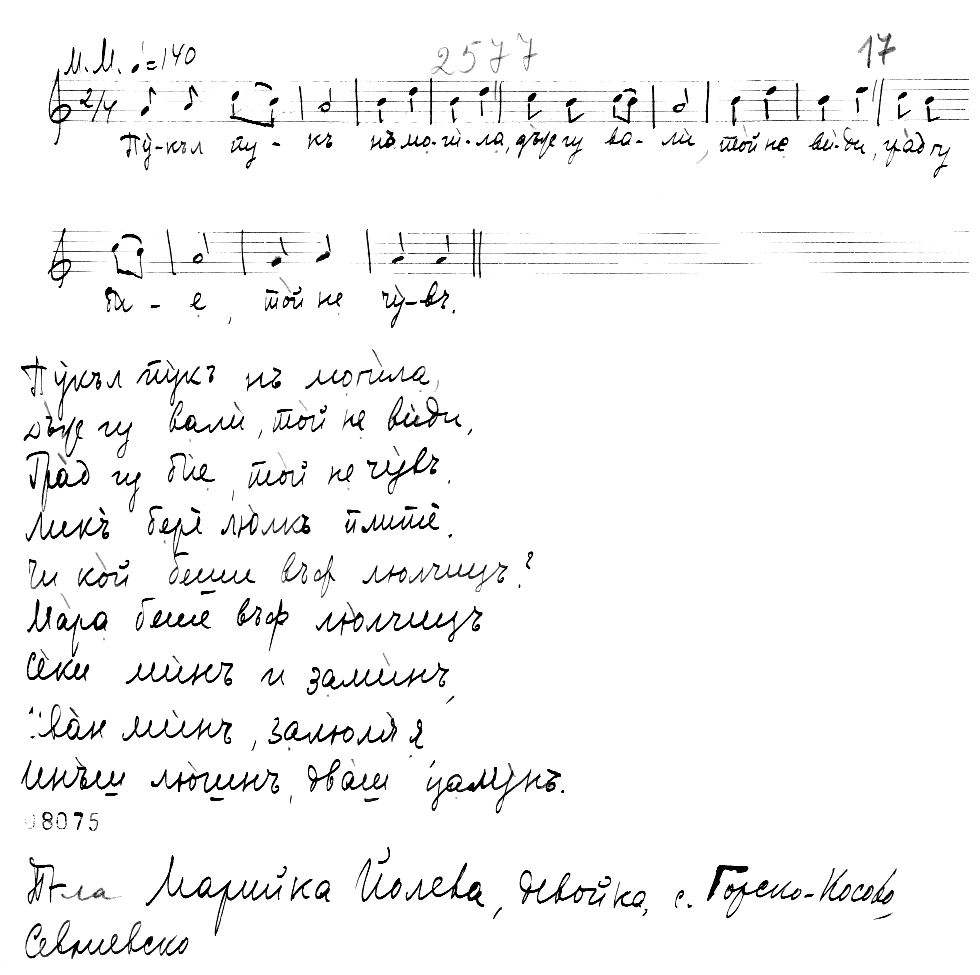 М.М. ♩=140
2577
17
2/4
Пỳ-къл пу - къ нъ мо-гѝ-ла, дъж гу ва-лѝ, то̀й не вѝ-ди, гра̀д гу
би - е, то̀й не чỳ-въ.
Пỳкъл пỳкъ нъ могѝла,
дъж гу валѝ, то̀й не вѝди,
Гра̀д гу бѝе, то̀й не чỳвъ.
берѐ лю̀лкъ плитѐ.
Чи ко̀й беши въф люлчицъ?
Ма̀ра бешѐ въф лю̀лчицъ
Сѐки мѝнъ и замѝнъ,
Ива̀н мѝнъ, залюля̀ я
лю̀шинъ, два̀ш
08075
Пяла Марийка Йолева, девойка, с. Горско-Косово,
Севлиевско